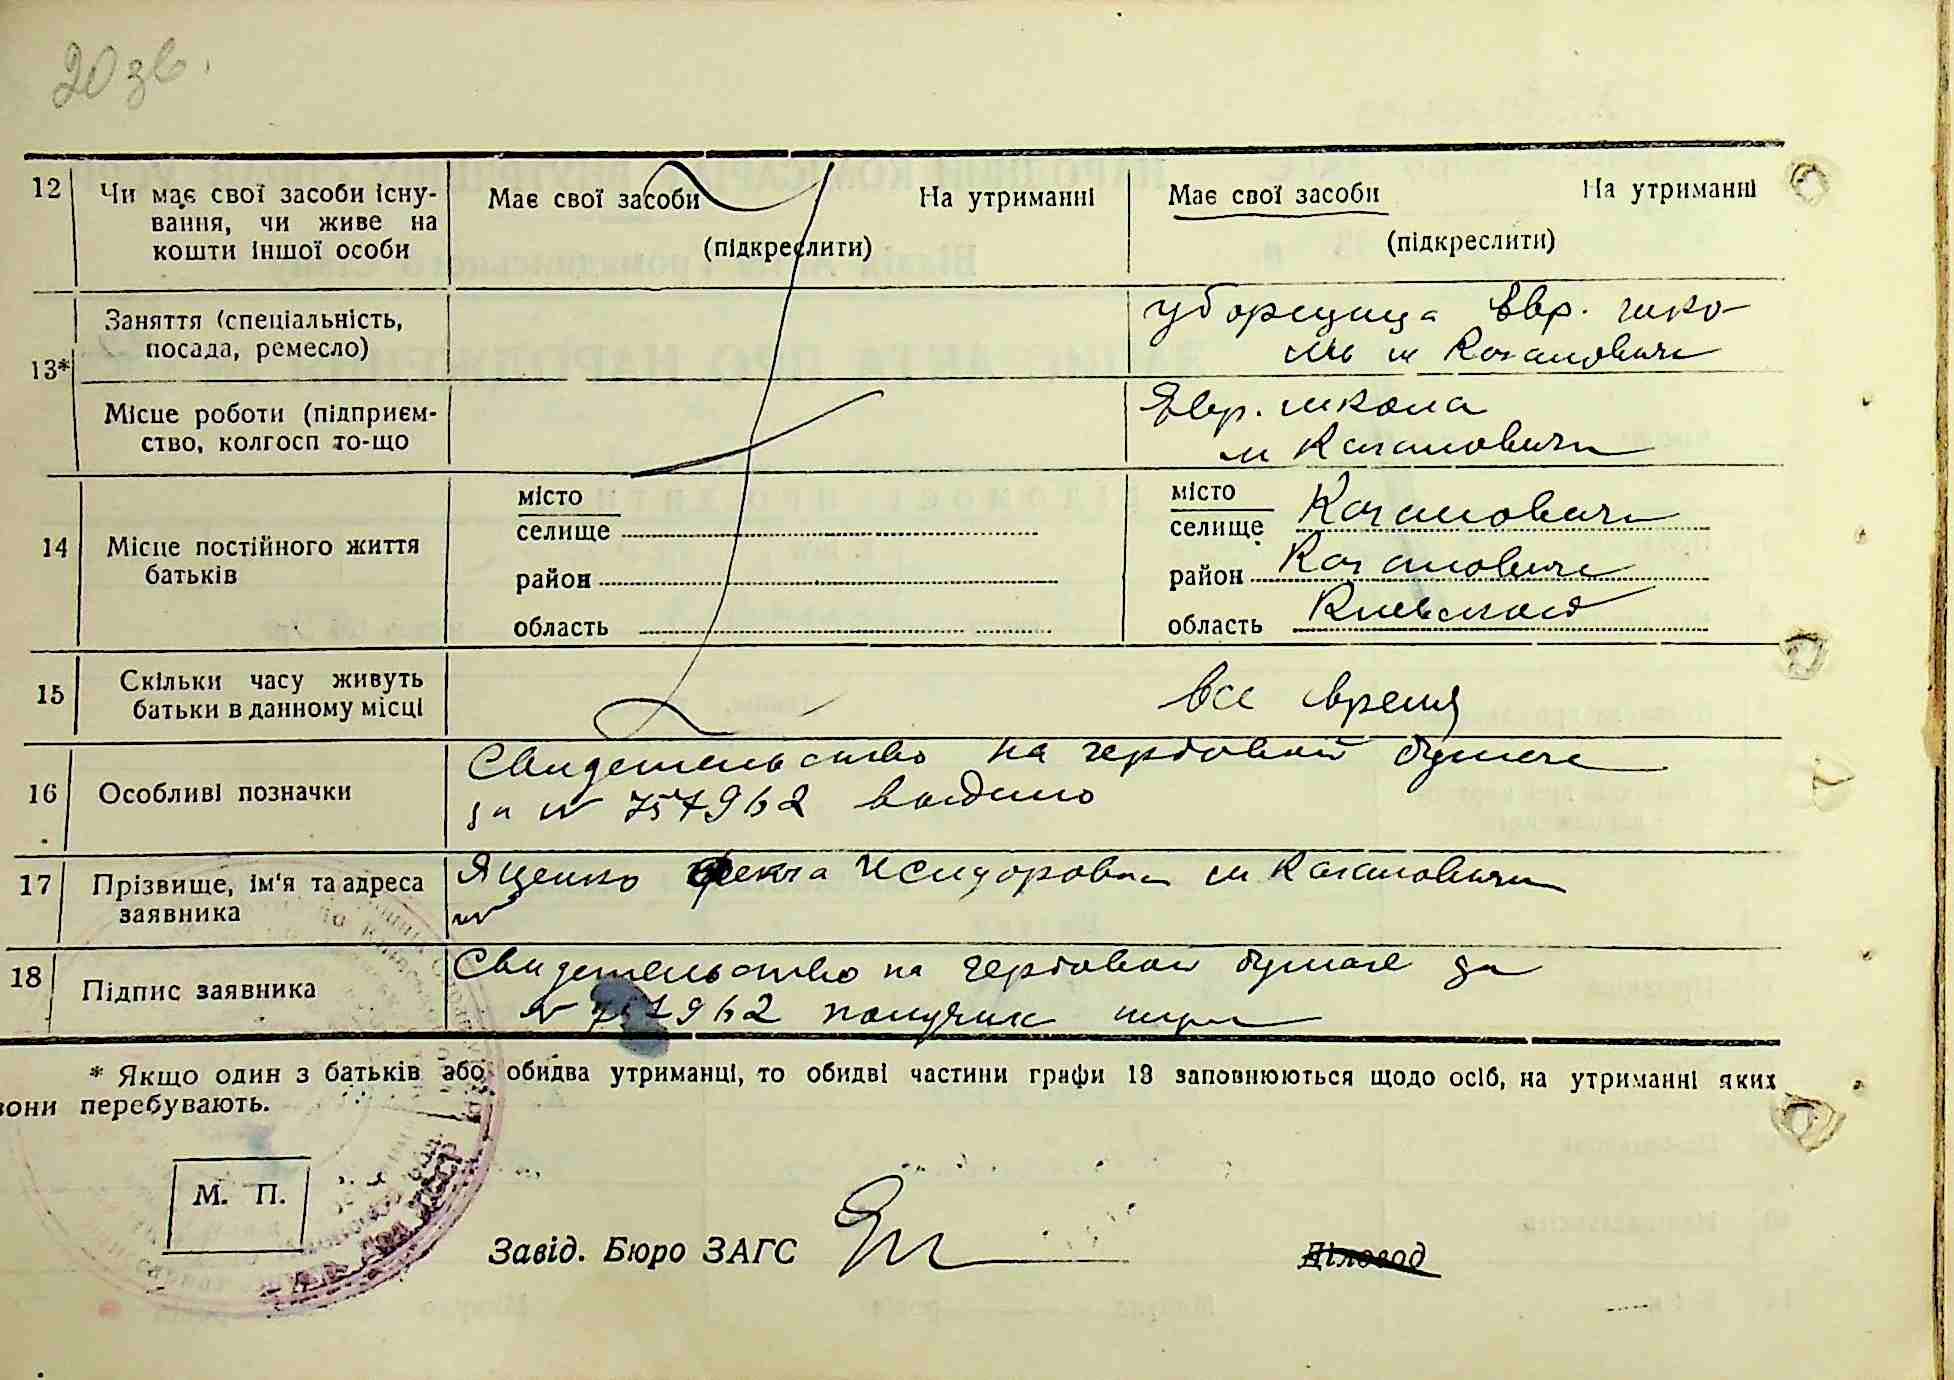 20 зв.
12 Чи має свої засоби існу- Має свої засоби На утриманні Має свої засоби На утриманні
вання, чи живе на
кошти іншої особи (підкреслити) (підкреслити)
13* Заняття (спеціальність, уборщица Евр. шко-
посада, ремесло) лы м Каганович
Місце роботи (підприєм- Евр. школа
ство, колгосп то-що м Кагановичи
14 Місце постійного життя
батьків
місто
селище
район
область
місто
селище Кагановичи
район Каганович
область Киевской
15 Скільки часу живуть все время
батьки в данному місці
16 Особливі позначки Свидетельство на гербовой бумаге
за № 757962 выдано
17 Прізвище, ім'я та адреса Яценко Фекла Исидоровна м Кагановичи
заявника №
18 Підпис заявника Свидетельство на гербовой бумаге за
№ 962 получил
* Якщо один з батьків або обидва утриманці, то обидві частини графи 13 заповнюються щодо осіб, на утриманні яких
вони перебувають.
М. П.
Завід. Бюро ЗАГС Діловод